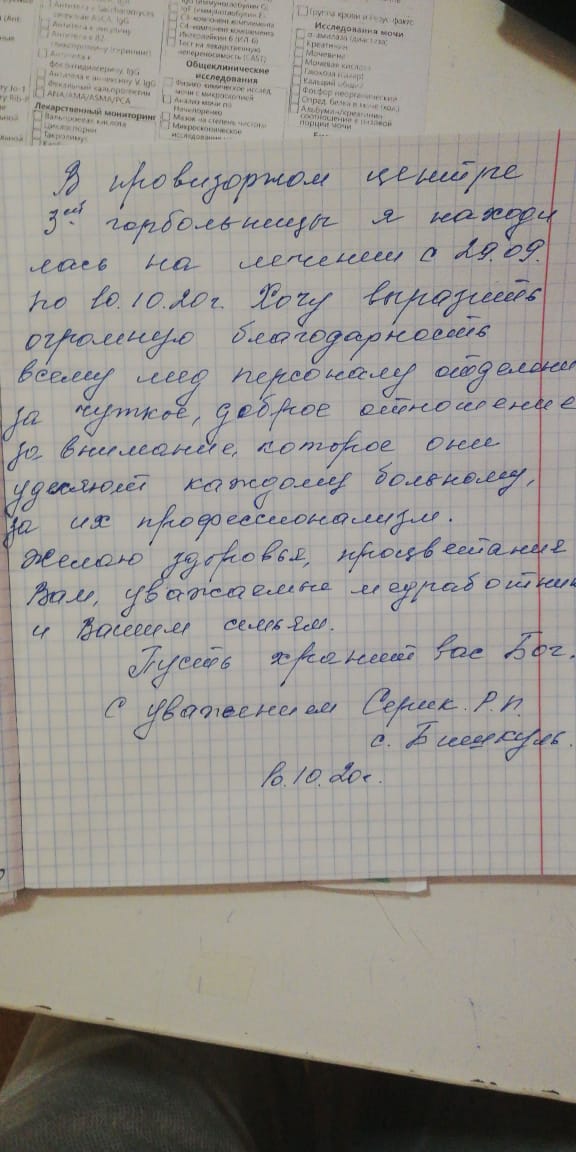 Антитела к Saccharomyces
cerevisiae ASCA, IgG
Антитела к инсулину
Антитела к β2-
гликопротеину (скрининг)
Антитела к
фосфатидилсерину, IgG
Антитела к аннексину V, IgG
Фекальный кальпротектин
ANA/AMA/ASMA/PCA
Лекарственный мониторинг
Вальпроевая кислота
Циклоспорин
Такролимус
С3-компонент комплемента
С4-компонент комплемента
Интерлейкин 6 (ИЛ 6)
Тест на лекарственную
непереносимость (CAST)
Общеклинические
исследования
Физико-химическое исслед.
мочи с микроскопией
Анализ мочи по
Нечипоренко
Мазок на степень чистоты
Микроскопическое
исследование
Группа крови и Резус-фактор
Исследования мочи
α-амилаза (диастаза)
Креатинин
Мочевина
Мочевая кислота
Глюкоза (сахар)
Кальций общий
Фосфор неорганический
Опред. белка в моче (кол.)
Альбумин/креатинин-
соотношение в разовой
порции мочи
В провизорном центре
3ей горбольницы я находи
лась на лечении с 29.09.
по 10.10.20г. Хочу выразить
огромную благодарность
всему мед персоналу отделени
за чуткое, доброе отношение
за внимание, которое они
уделяют каждому больному,
за их профессионализм.
Желаю здоровья, процветания
Вам, уважаемые медработник
и Вашим семьям.
Пусть хранит вас Бог.
С уважением Серик. Р.П.
с. Бишкуль.
10.10.20г.